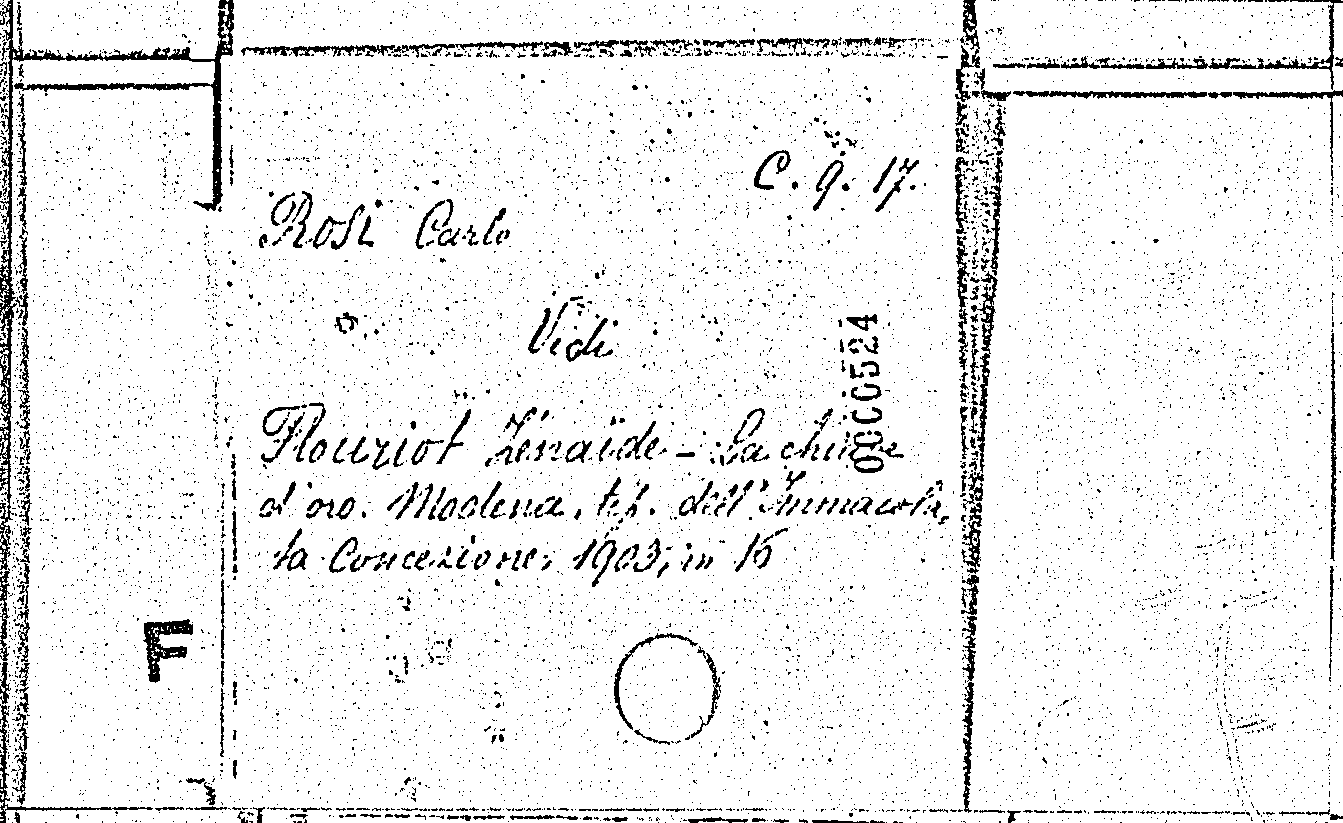 C. 9. 17.
Rosi Carlo
Vidi
0000524
Fleuriot Zénaïde - La chiave
d'oro. Modena, tip. dell'Immacola,
ta Concezione, 1903; in 16
F